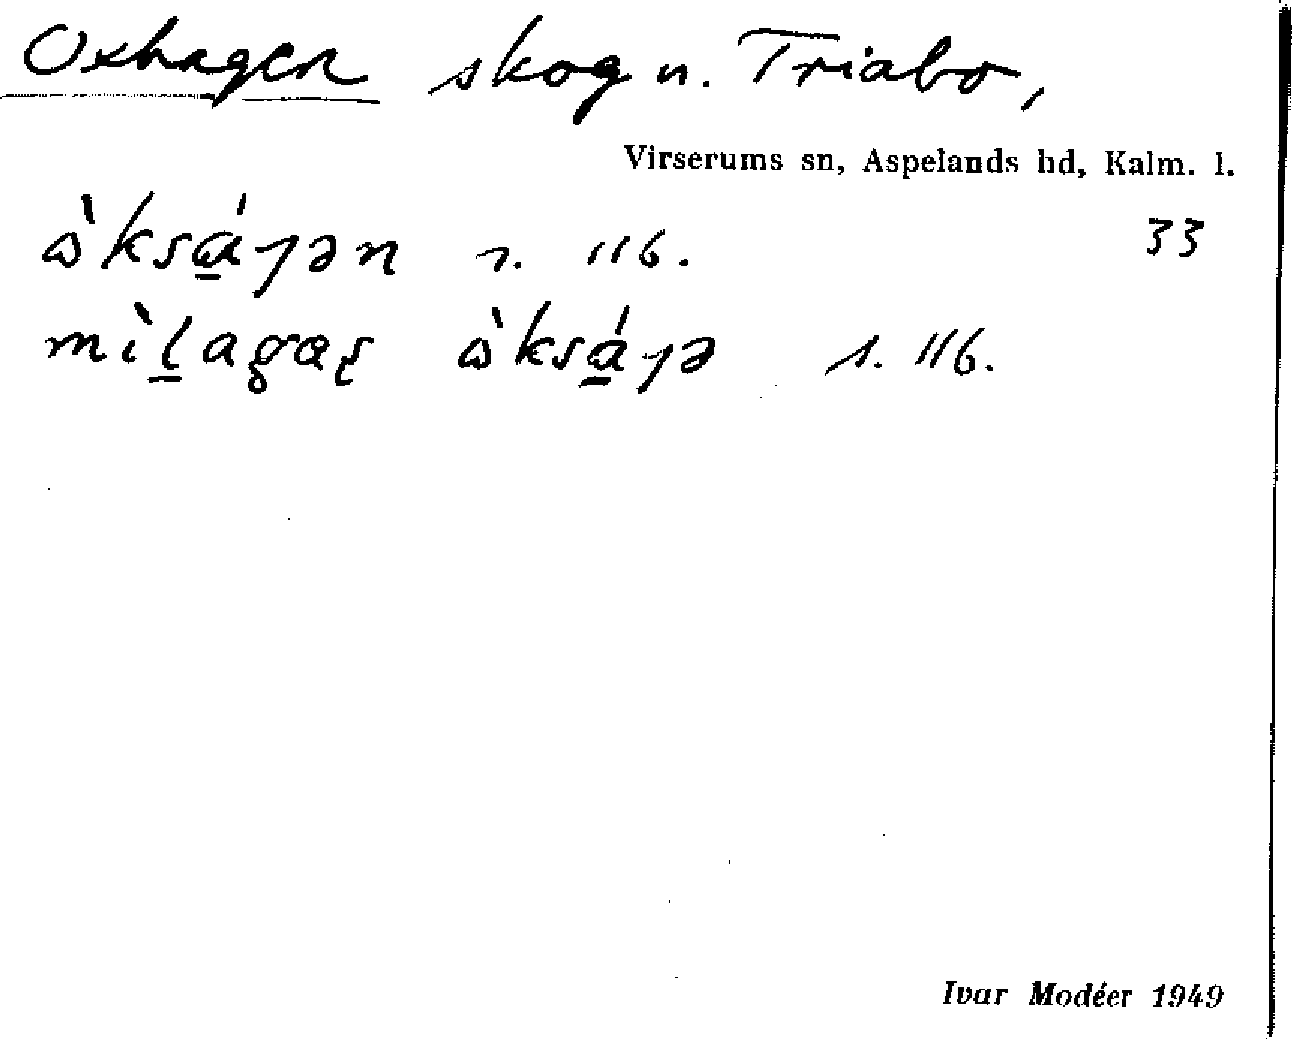 Oxhagen skog n. Triabo,
Virserums sn, Aspelands hd, Kalm. l.
ὼksɑ̲́ɿən s. 116. 33
mìl̲agaʂ ὼksɑ̲́ɿə s. 116.
Ivar Modéer 1949